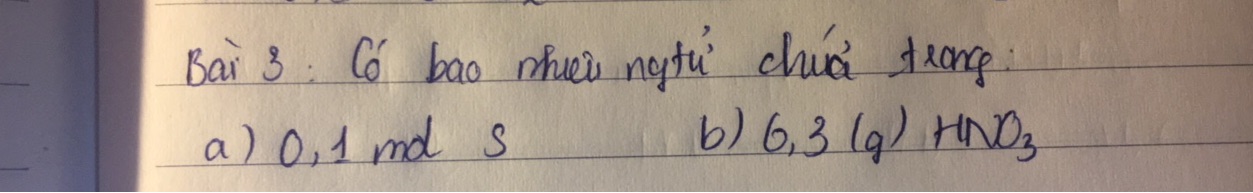 Bài 3 : Có bao nhiêu ngtử chứa trong:
a) 0,1 mol S b) 6,3 (g) HNO₃